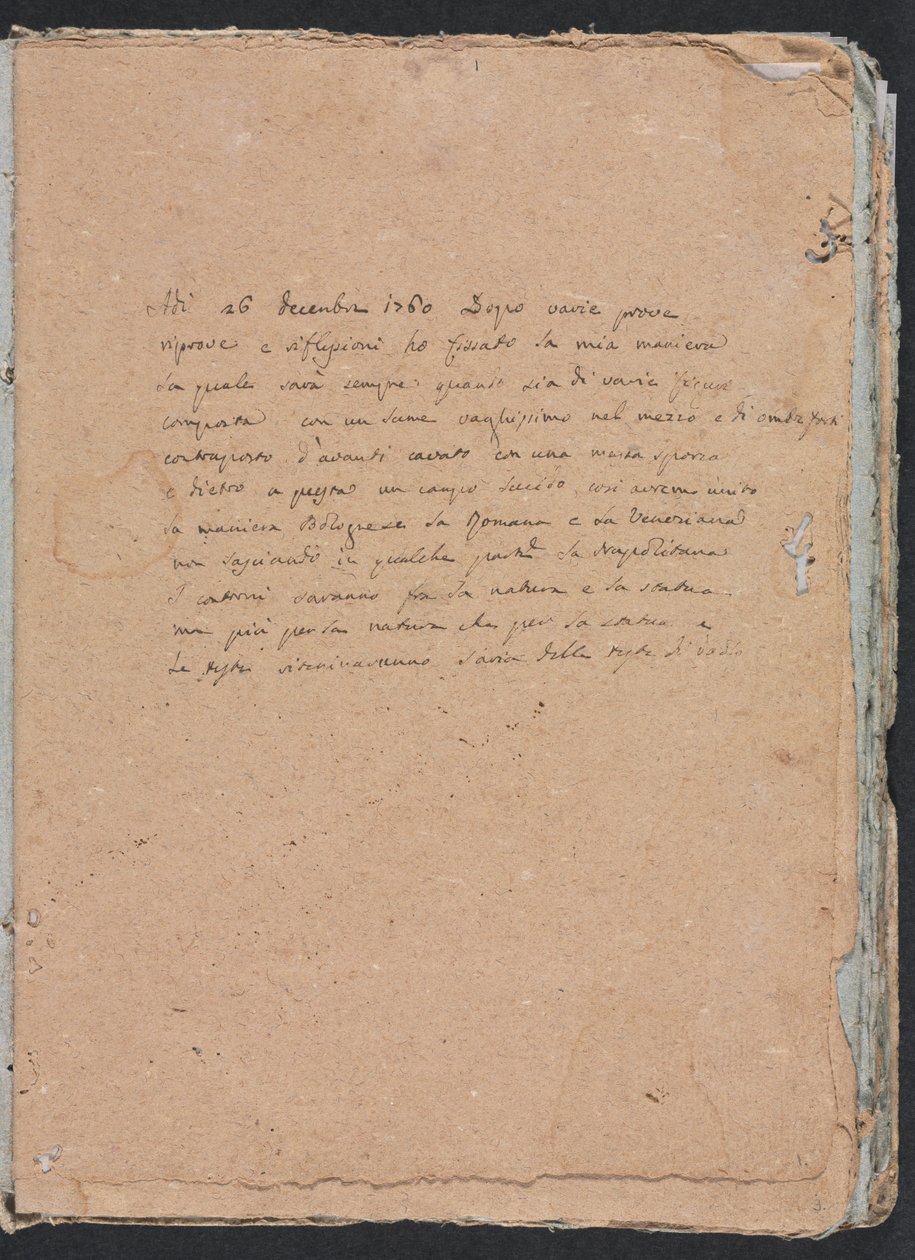 1
Adi 26 decembre 1760 Dopo varie prove
riprove e riflessioni ho fissato la mia maniera
la quale sarà sempre quando sia di varie figure
composta con un lume vaghissimo nel mezzo e di ombre forti
contraposto d'avanti cavato con una massa sporca
e dietro a questa un campo lucido cosi avremo unito
la maniera Bolognese la Romana e la Veneziana
non lasciando in qualche parte la Napolitana
I contorni saranno fra la natura e la statua
ma più per la natura che per la statua e
Le teste steniravanno l'aria delle teste di
1.
3.